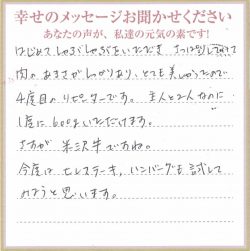 幸せのメッセージお聞かせください
あなたの声が、私達の元気の素です!
はじめてしゃぶしゃぶをいただき さっぱりしてみて
肉のあまさがしっかりあり、とても美しかったので
4度目のリピーターです。主人と2人なのに
1度に600gいただけます。
さすが 米沢牛ですね。
今度は ヒレステーキ、ハンバーグも試して
みようと思います。